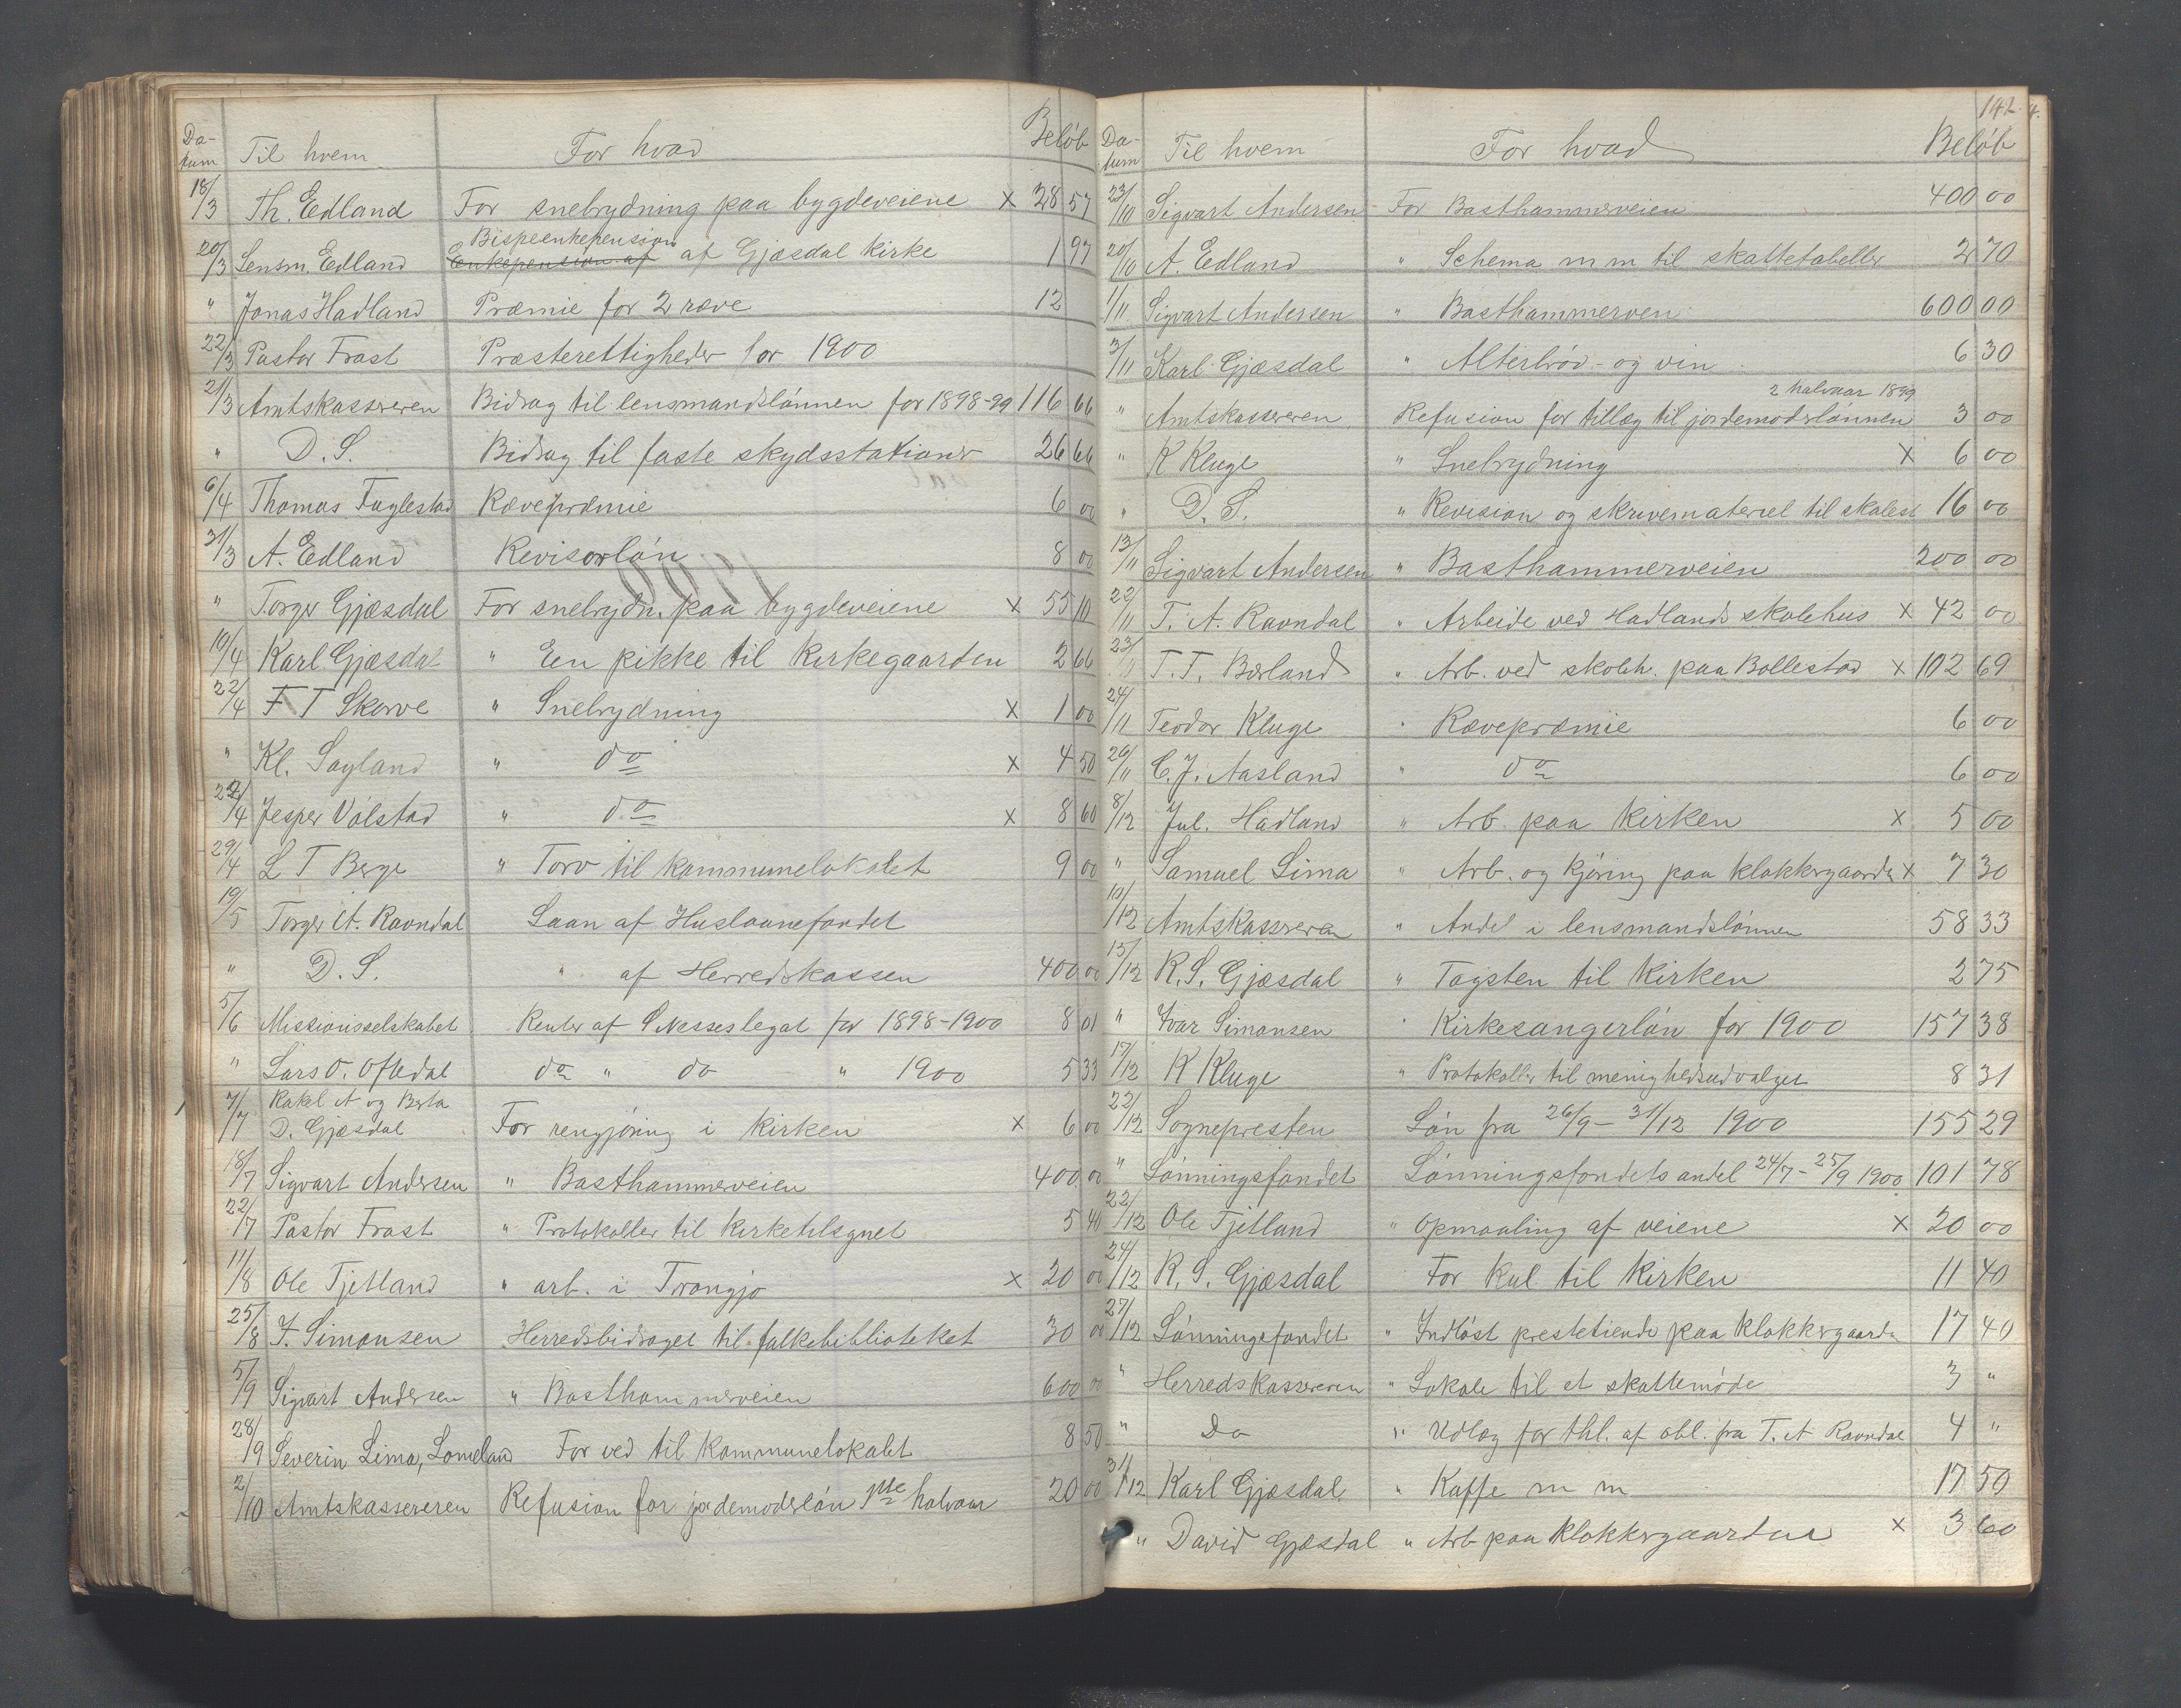 Da-
tum Til hvem For hvad Beløb
18/3 Th. Edland For snebrydning paa bygdeveiene x 28 57
Bispeenkepension
20/3 Lensm. Edland Enkepension af af Gjæsdal kirke 1 97
" Jonas Hadland Præmie for 2 ræve 12
22/3 Pastor Frost Præsterettigheder for 1900
21/3 Amtskassereren Bidrag til lensmandslønnen for 1898-99 116 66
" D. S. Bidrag til faste skydsstationer 26 66
6/4 Thomas Fuglestad Rævepræmie 6 00
31/3 A. Edland Revisorløn 8 00
" Torger Gjæsdal For snebrydn. paa bygdeveiene x 55 10
10/4 Karl Gjæsdal " Een pikke til kirkegaarden 2 66
22/4 F T Skurve " Snebrydning x 1 00
" Kl. Søyland " do x 4 50
22/4 Jesper Vølstad " do x 8 60
29/4 L T Berge " Torv til kommunelokalet 9 00
19/5 Torger A. Ravndal Laan af Huslaanefondet
" D. S. " af Herredskassen 400 00
5/6 Missionsselskabet Renter af S Nesses legat for 1898-1900 8 01
" Lars O. Oftedal do " do " 1900 5 33
Rakel A og Berta
7/7 D. Gjæsdal For rengjøring i kirken x 6 00
18/7 Sigvart Andersen " Basthammerveien 400 00
22/7 Pastor Frost " Protokoller til kirketilsynet 5 40
11/8 Ole Tjetland " arb. i Trongjo x 20 00
25/8 I. Simonsen Herredsbidraget til folkebiblioteket 30 00
5/9 Sigvart Andersen " Basthammerveien 600 00
28/9 Severin Lima, Lomeland For ved til kommunelokalet 8 50
2/10 Amtskassereren Refusion for jordemoderløn 1ste halvaar 20 00
142.
Da-
tum Til hvem For hvad Beløb
23/10 Sigvart Andersen For Basthammerveien 400 00
20/10 A. Edland " Schema m m til skattetabeller 2 70
1/11 Sigvart Andersen " Basthammerven 600 00
3/11 Karl Gjæsdal " Alterbrød- og vin 6 30
2 halvaar 1899
" Amtskassereren Refusion for tillæg til jordemoderlønnen 3 00
" K Kluge " Snebrydning x 6 00
" D. S. " Revision og skrivemateriel til skolest 16 00
13/11 Sigvart Andersen " Basthammerveien 200 00
22/11 T. A. Ravndal " Arbeide ved Hadlands skolehus x 42 00
23/11 T. T. Bærland " Arb. ved skoleh. paa Bollestad x 102 69
24/11 Teodor Kluge " Rævepræmie 6 00
26/11 C. J. Aasland " do 6 00
8/12 Jul. Hadland " Arb. paa kirken x 5 00
" Samuel Lima " Arb. og kjøring paa klokkergaarden x 7 30
10/12 Amtskassereren " Andel i lensmandslønnen 58 33
15/12 R. S. Gjæsdal " Tagsten til kirken 2 75
" Ivar Simonsen " Kirkesangerløn for 1900 157 38
17/12 K Kluge " Protokoller til menighedsudvalget 8 31
22/12 Sognepresten Løn fra 26/9 - 31/12 1900 155 29
" Lønningsfondet Lønningsfondets andel 24/7 - 25/9 1900 101 78
22/12 Ole Tjetland " Opmaaling af veiene x 20 00
24/12 R. S. Gjæsdal For kul til kirken 11 40
27/12 Lønningsfondet " Indløst prestetiende paa klokkergaarden 17 40
" Herredskassereren " Lokale til et skattemøde 3 "
" Do " Udlæg for thl. af obl. fra T. A Ravndal 4 "
31/12 Karl Gjæsdal " Kaffe m m 17 50
" David Gjæsdal " Arb paa klokkergaarden x 3 60